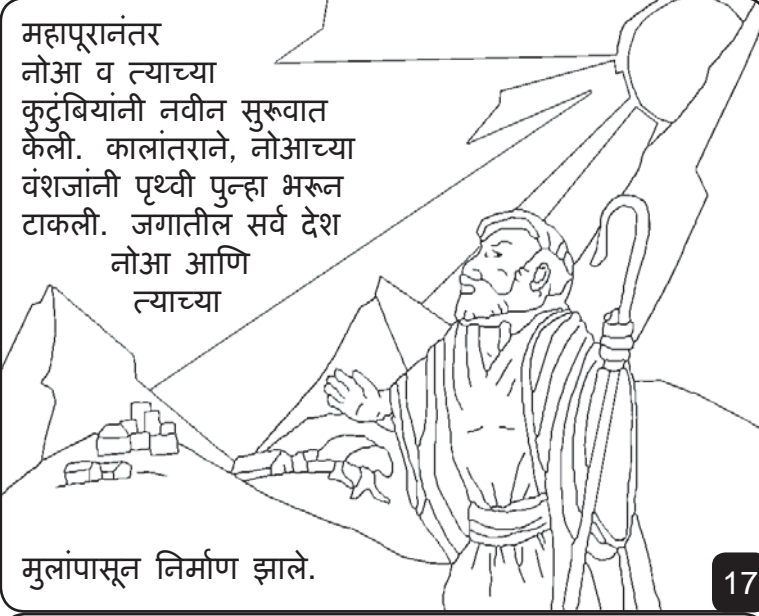 महापूरानंतर
नोआ व त्याच्या
कुटुंबियांनी नवीन सुरूवात
केली. कालांतराने, नोआच्या
वंशजांनी पृथ्वी पुन्हा भरून
टाकली. जगातील सर्व देश
नोआ आणि
त्याच्या
मुलांपासून निर्माण झाले.
17